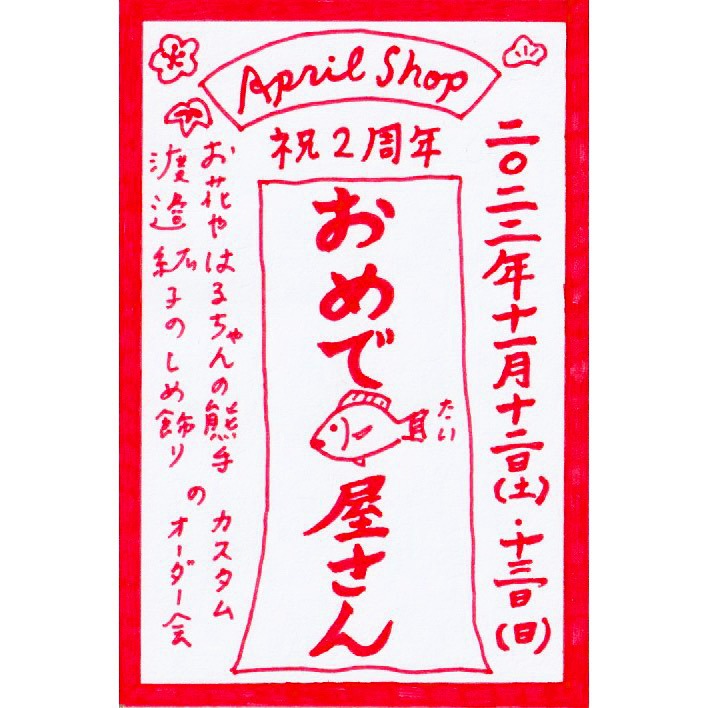 April Shop
祝2周年
二〇二二年十一月十二日(土)・十三日(日)
おめで
たい
屋さん
お花やはるちゃんの熊手カスタム
渡邉紘子のしめ飾りのオーダー会